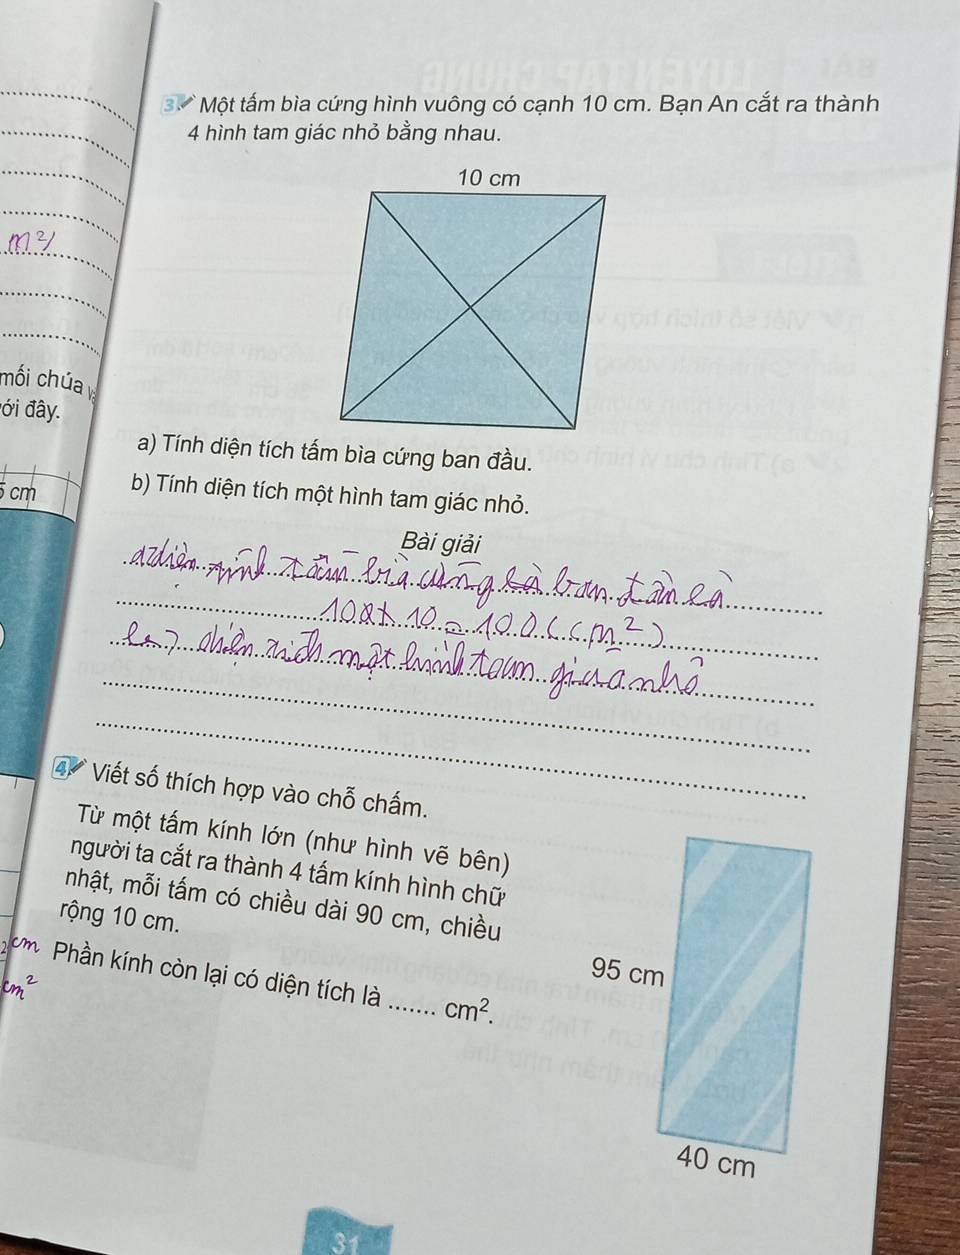 3. Một tấm bìa cứng hình vuông có cạnh 10 cm. Bạn An cắt ra thành
4 hình tam giác nhỏ bằng nhau.
10 cm
m²
mối chúa
ới đây.
5 cm
a) Tính diện tích tấm bìa cứng ban đầu.
b) Tính diện tích một hình tam giác nhỏ.
Bài giải
bìa cứng
10 = 100 (cm²)
một hình
4. Viết số thích hợp vào chỗ chấm.
Từ một tấm kính lớn (như hình vẽ bên)
người ta cắt ra thành 4 tấm kính hình chữ
nhật, mỗi tấm có chiều dài 90 cm, chiều
rộng 10 cm.
Phần kính còn lại có diện tích là ....... cm².
cm
cm²
95 cm
40 cm
31